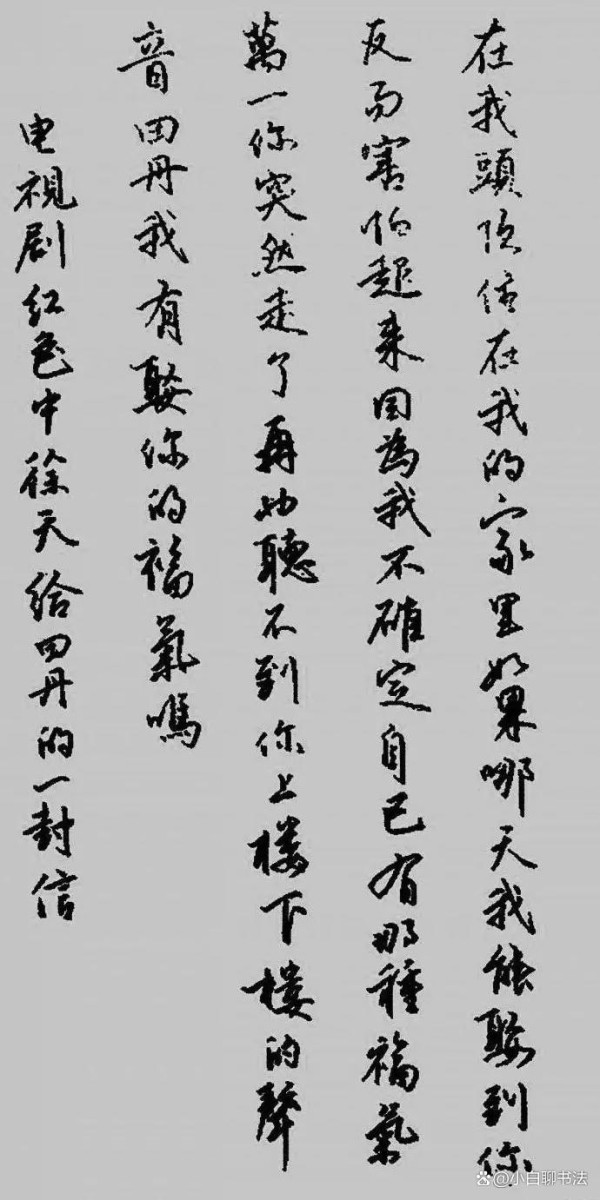 在我頭顶住在我的家里如果哪天我能娶到你
反而害怕起来因為我不確定自己有那種福氣
萬一你突然走了再也聽不到你上楼下樓的聲
音田丹我有娶你的福氣嗎
电視剧红色中徐天给田丹的一封信
@小白聊书法